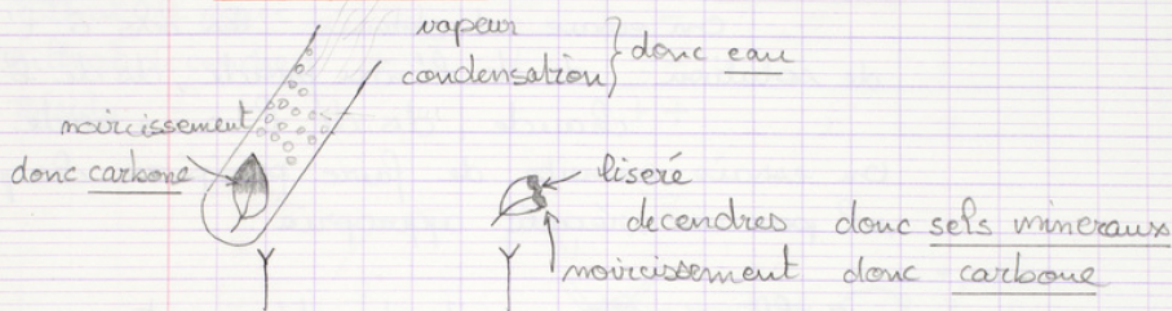 vapeur
condensation } donc eau
noircissement
donc carbone
liseré
de cendres donc sels mineraux
noircissement donc carbone